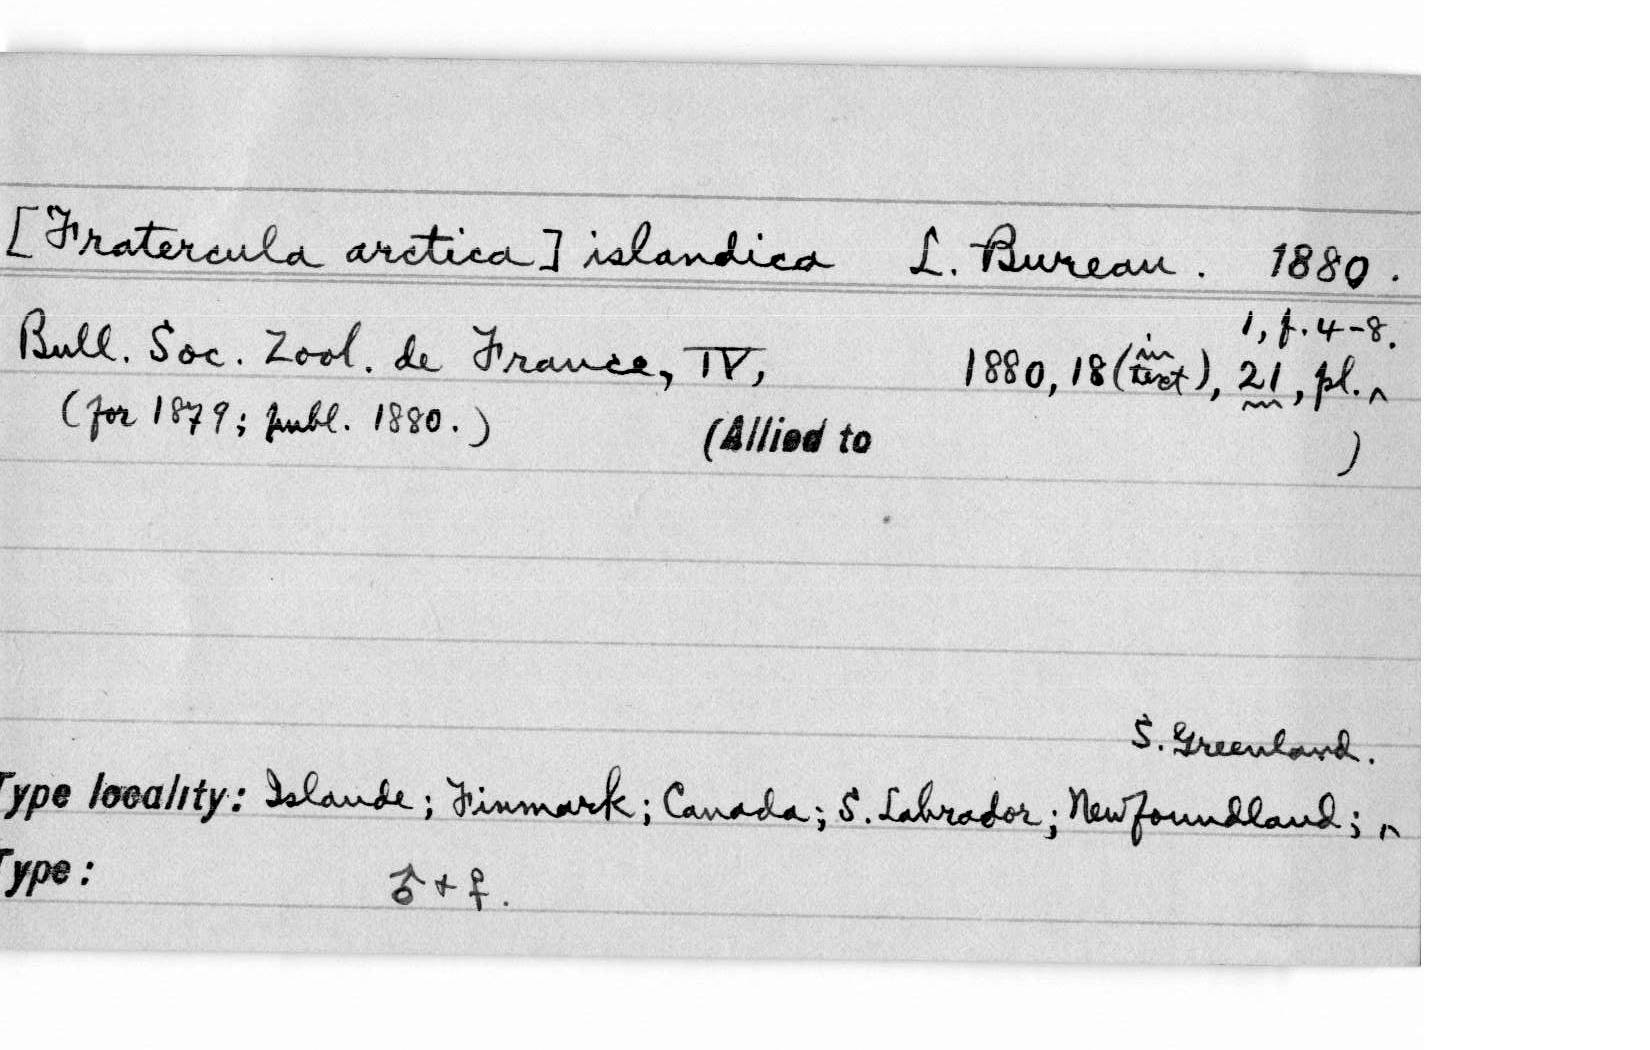 [Fratercula arctica] islandica L. Bureau. 1880.
1, f. 4-8.
Bull. Soc. Zool. de France, IV, 1880, 18 (in text), 21, pl. ^
(for 1879; publ. 1880.) (Allied to )
S. Greenland.
Type locality: Islande; Finmark; Canada; S. Labrador; Newfoundland; ^
Type: ♂ + ♀.